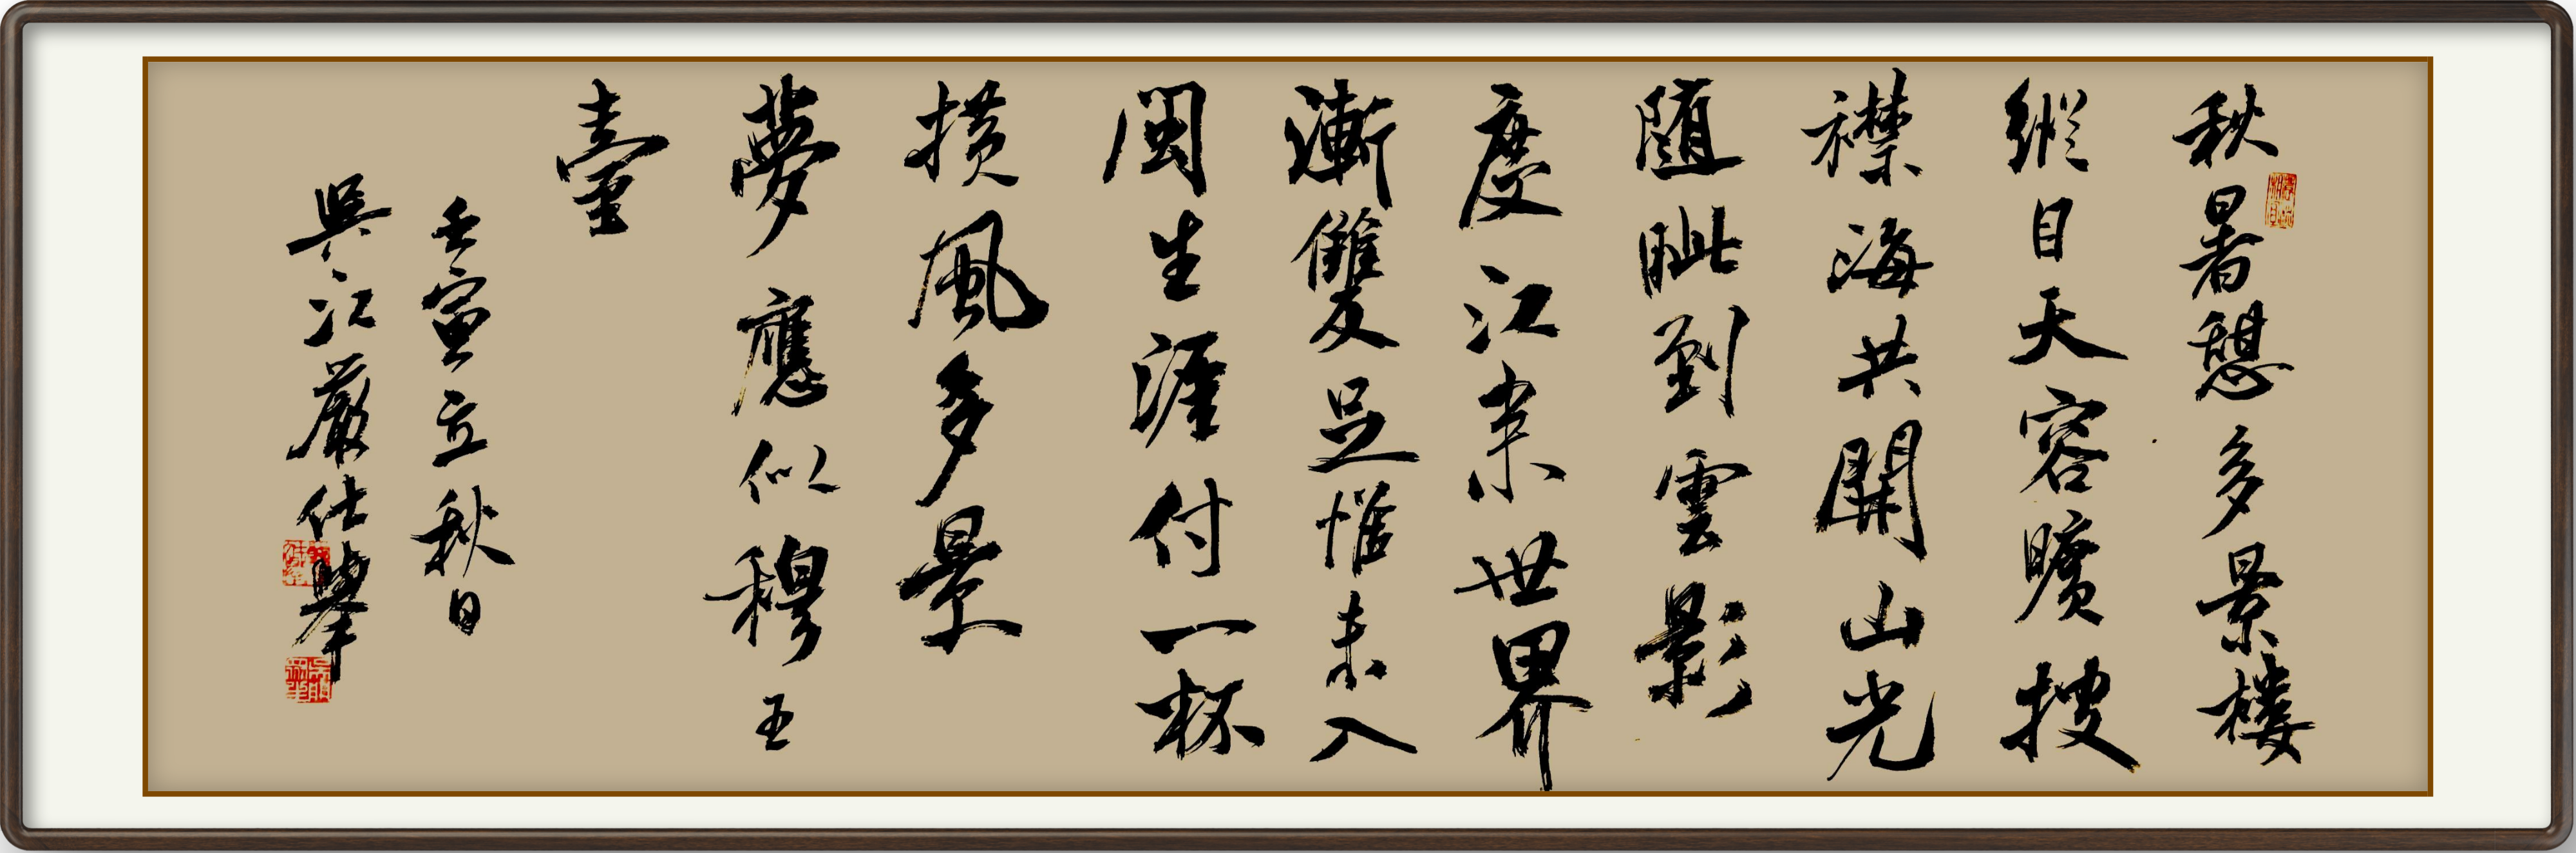 秋暑憩多景樓
縱目天容曠披
襟海共開山光
隨眦到雲影
度江來世界
漸雙足惟未入
閩生涯付一杯
橫風多景
夢應似穆王
臺
壬寅立秋日
吳江嚴仕舉